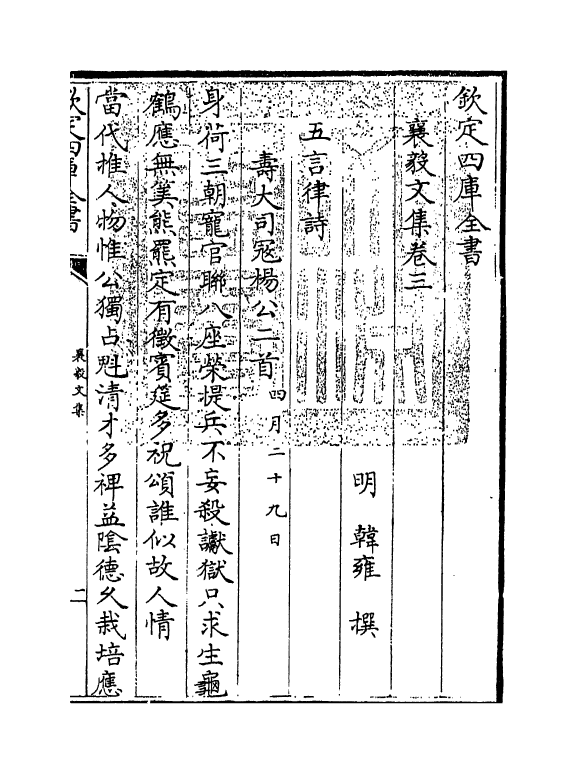 欽定四庫全書
襄毅文集卷三
明 韓雍 撰
五言律詩
壽大司冦楊公二首 四月二十九日
身荷三朝寵官聯八座榮提兵不妄殺讞獄只求生龜
鶴應無算熊羆定有徵賓筵多祝頌誰似故人情
當代推人物惟公獨占魁清才多裨益陰德久栽培應
欽定四庫全書
襄毅文集
二